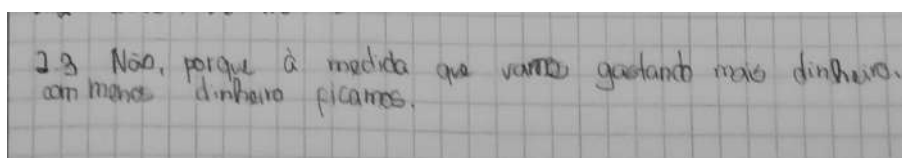 2.3 Não, porque à medida que vamos gastando mais dinheiro.
com menos dinheiro ficamos.